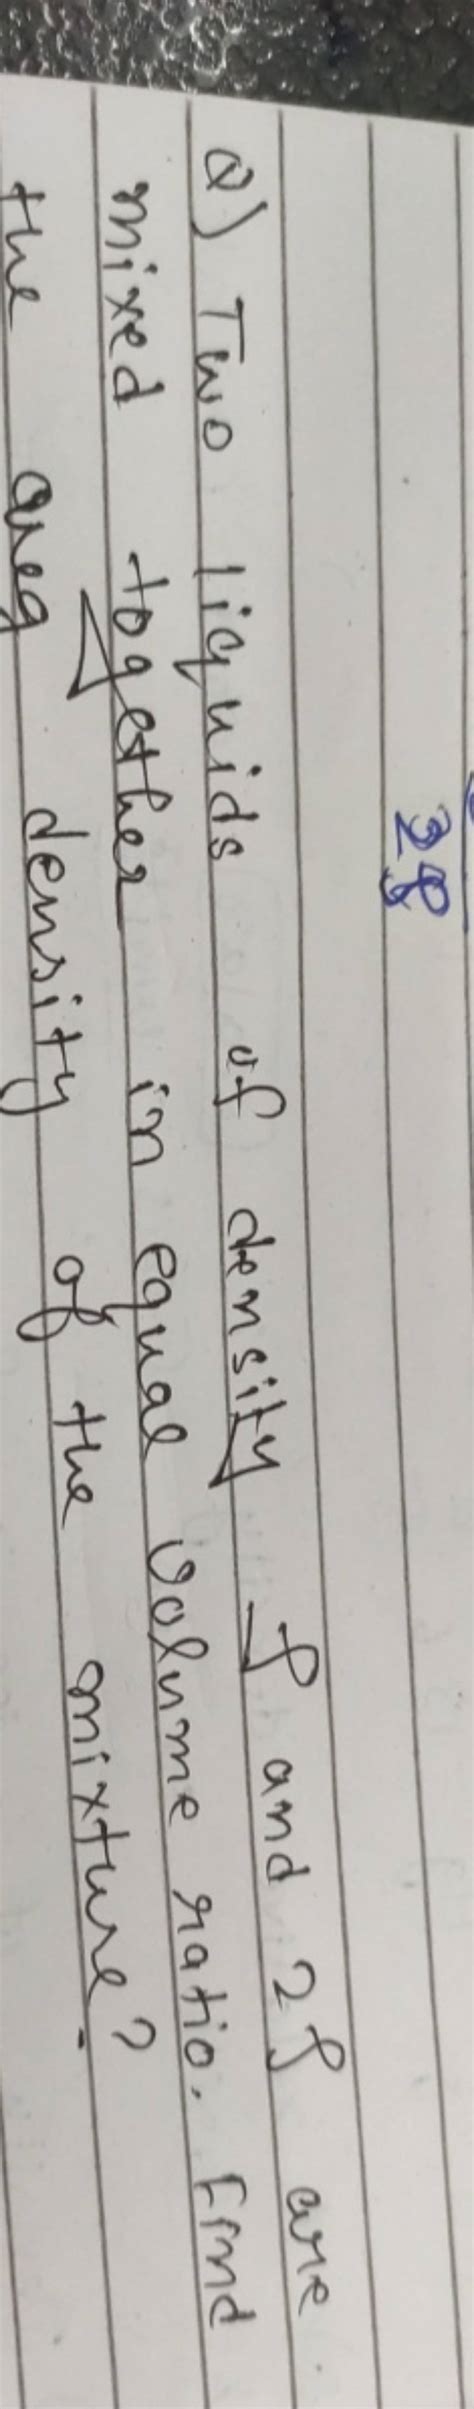 2ρ
Q) Two liquids of density ρ and 2ρ are
mixed together in equal volume ratio. Find
the avg density of the mixture?